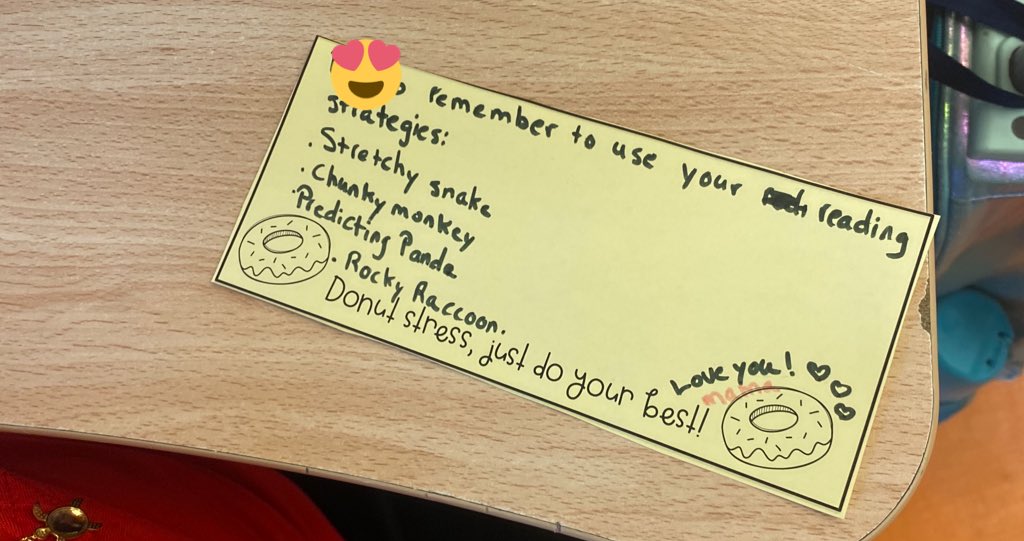 remember to use your reading
strategies:
· Stretchy snake
· Chunky monkey
· Predicting Panda
· Rocky Raccoon.
Donut stress, just do your best!
Love you!
mama